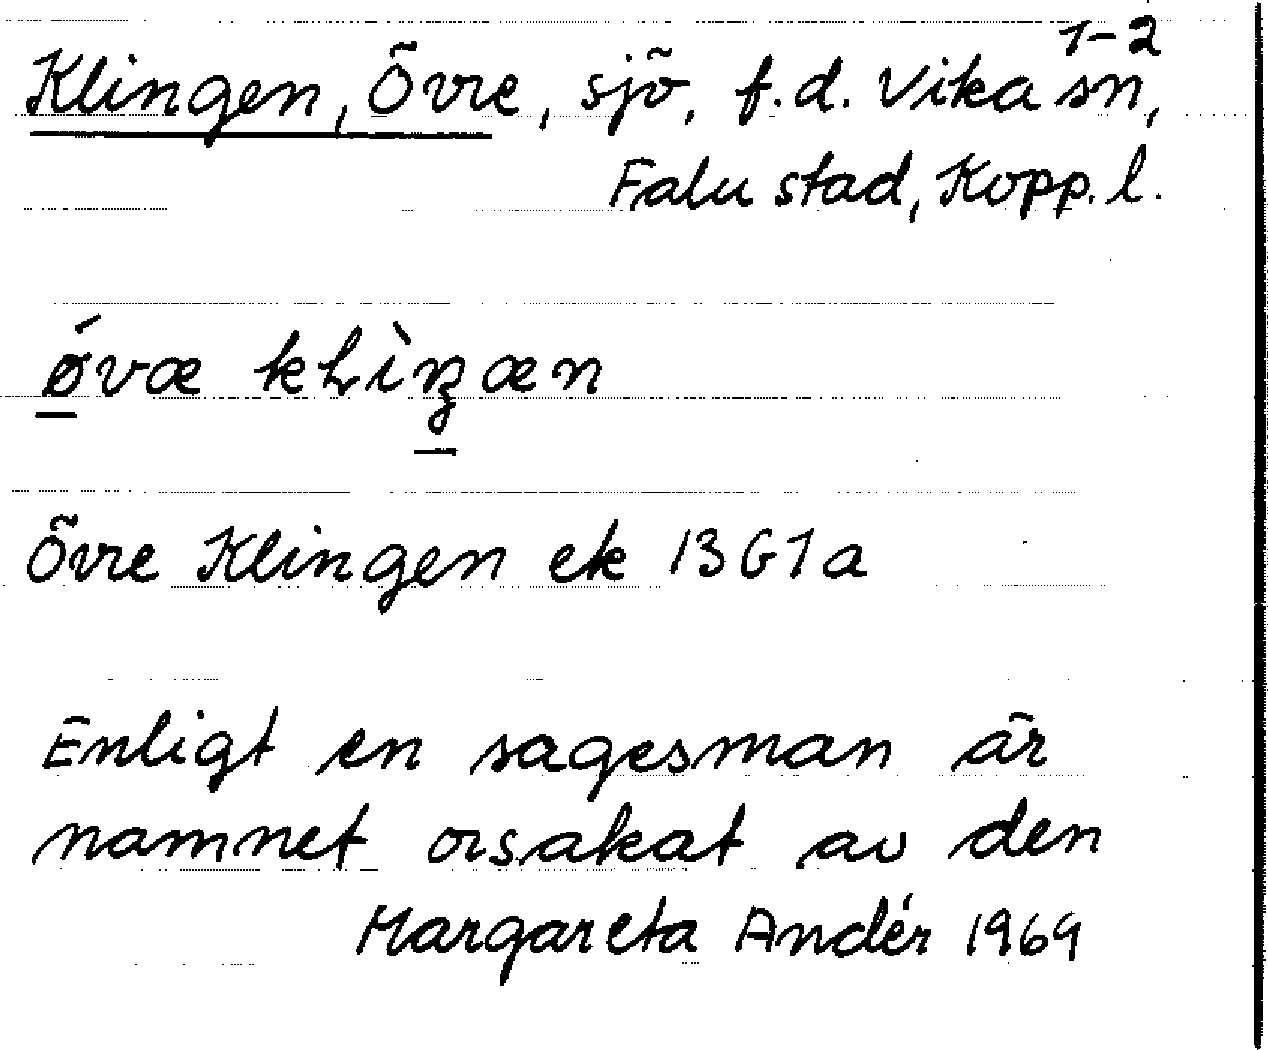 1-2
Klingen, Övre, sjö, f.d. Vika sn,
Falu stad, Kopp. l.
ǿvæ kLìŋæn
Övre Klingen ek 13G1a
Enligt en sagesman är
namnet orsakat av den
Margareta Andér 1969